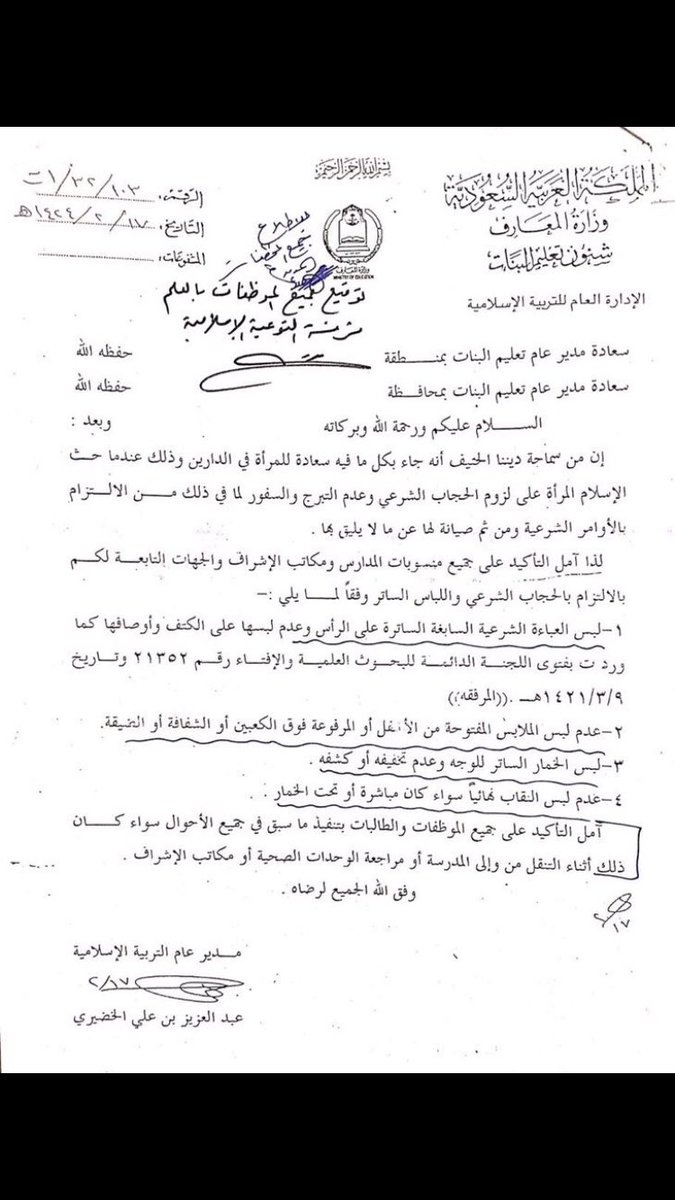 بسم الله الرحمن الرحيم
المملكة العربية السعودية
وزارة المعارف
شئون تعليم البنات
الإدارة العام للتربية الإسلامية
وزارة المعارف
MINISTRY OF EDUCATION
الرقم: ١/٣٢/١٠٣/ت
التاريخ: ١٤٢٤/٢/١٧هـ
المشفوعات:
للاطلاع
توقيع جميع الموظفات بالعلم
مشرفة التوعية الإسلامية
سعادة مدير عام تعليم البنات بمنطقة حفظه الله
سعادة مدير عام تعليم البنات بمحافظة حفظه الله
السلام عليكم ورحمة الله وبركاته وبعد :
إن من سماحة ديننا الحنيف أنه جاء بكل ما فيه سعادة للمرأة في الدارين وذلك عندما حث
الإسلام المرأة على لزوم الحجاب الشرعي وعدم التبرج والسفور لما في ذلك من الالتزام
بالأوامر الشرعية ومن ثم صيانة لها عن ما لا يليق بها .
لذا آمل التأكيد على جميع منسوبات المدارس ومكاتب الإشراف والجهات التابعة لكم
بالالتزام بالحجاب الشرعي واللباس الساتر وفقاً لما يلي :-
١-لبس العباءة الشرعية السابغة الساترة على الرأس وعدم لبسها على الكتف وأوصافها كما
وردت بفتوى اللجنة الدائمة للبحوث العلمية والإفتاء رقم ٢١٣٥٢ وتاريخ
١٤٢١/٣/٩هـ .((المرفقه))
٢-عدم لبس الملابس المفتوحة من الأسفل أو المرفوعة فوق الكعبين أو الشفافة أو الضيقة.
٣-لبس الخمار الساتر للوجه وعدم تخفيفه أو كشفه .
٤-عدم لبس النقاب نهائياً سواء كان مباشرة أو تحت الخمار .
آمل التأكيد على جميع الموظفات والطالبات بتنفيذ ما سبق في جميع الأحوال سواء كان
ذلك أثناء التنقل من وإلى المدرسة أو مراجعة الوحدات الصحية أو مكاتب الإشراف .
وفق الله الجميع لرضاه .
٢/١٧
مدير عام التربية الإسلامية
٢/١٧
عبد العزيز بن علي الخضيري